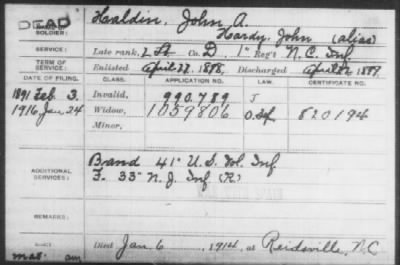 DEAD
NAME OF SOLDIER: Haldin, John A.
Hardy, John (alias)
SERVICE: Late rank, Co. D, 1" Reg't N.C. Inf.
TERM OF SERVICE: Enlisted April 27, 1898, Discharged April 22, 1899
DATE OF FILING. CLASS. APPLICATION NO. LAW. CERTIFICATE NO.
1891 Feb. 3, Invalid, 990.789 J
1916 Jan. 24 Widow, 1059806 820194
Minor,
ADDITIONAL SERVICES: Band 41" U.S. Vol. Inf.
F. 33" N.J. Inf (R)
REMARKS:
Died Jan 6, 1914, at Reidsville, N.C.